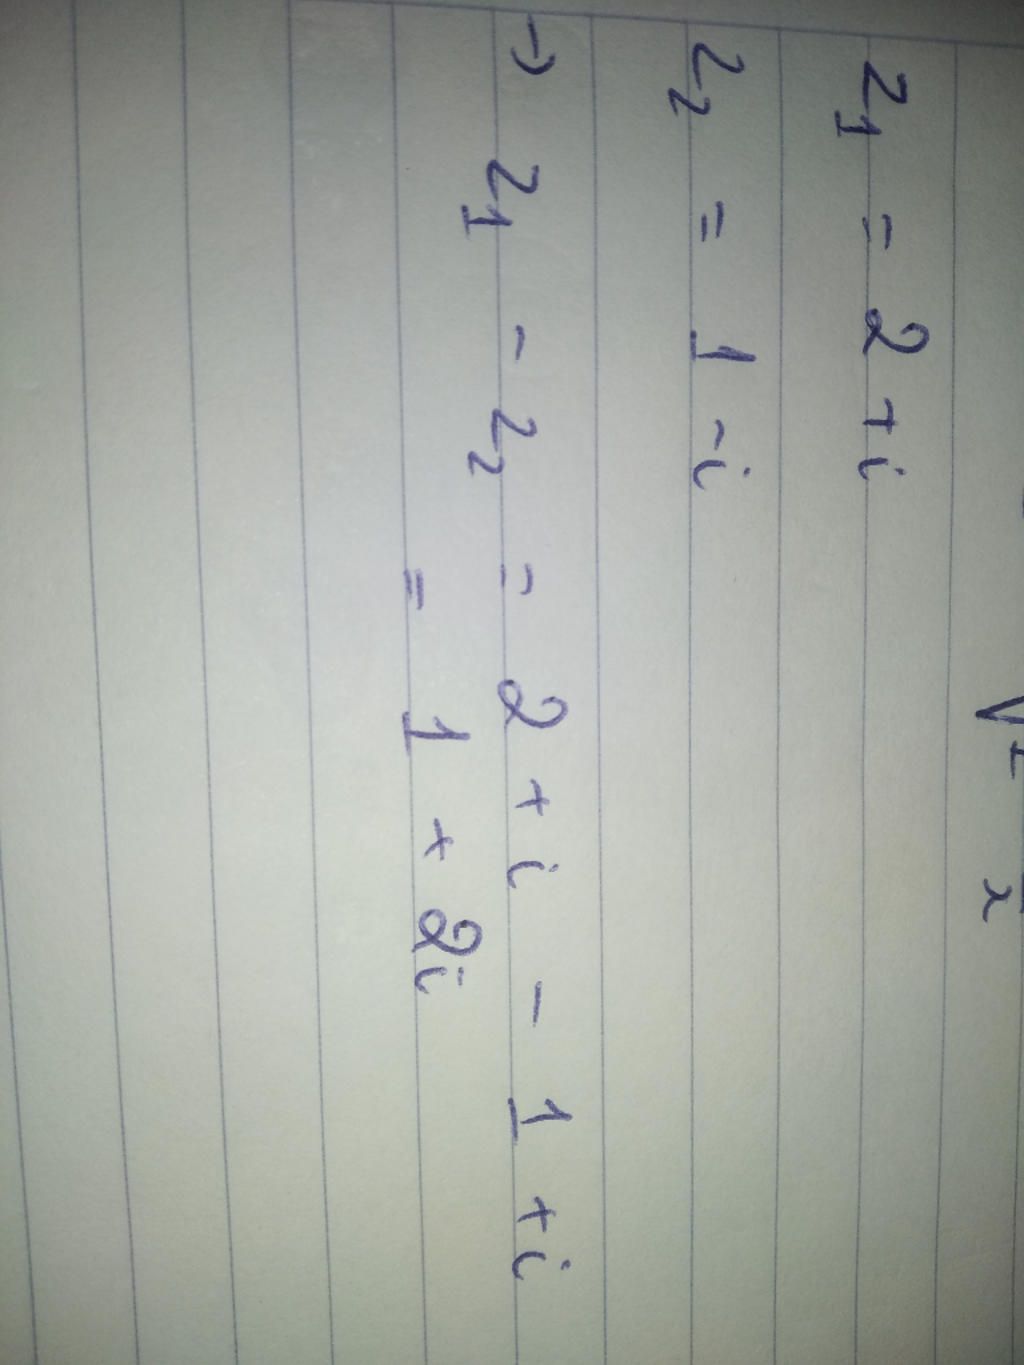 z₁ = 2 + i
z₂ = 1 - i
→ z₁ - z₂ = 2 + i - 1 + i
= 1 + 2i